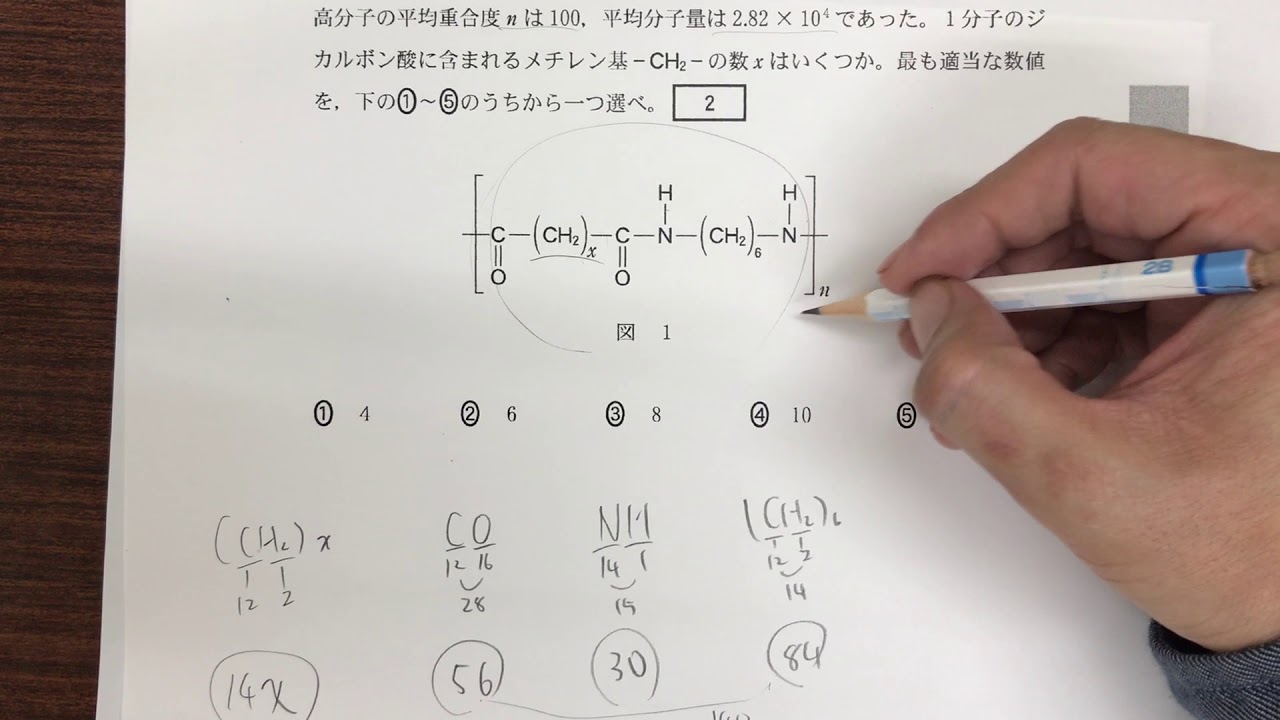 高分子の平均重合度 n は 100，平均分子量は 2.82 × 10⁴ であった。1 分子のジ
カルボン酸に含まれるメチレン基－CH₂－の数 x はいくつか。最も適当な数値
を，下の①～⑤のうちから一つ選べ。 2
H H
C (CH₂)x C N (CH₂)₆ N
O O n
図 1
① 4 ② 6 ③ 8 ④ 10 ⑤
2B
(CH₂)x CO NH (CH₂)₆
12 2 12 16 14 1 12 2
28 15 14
14x 56 30 84